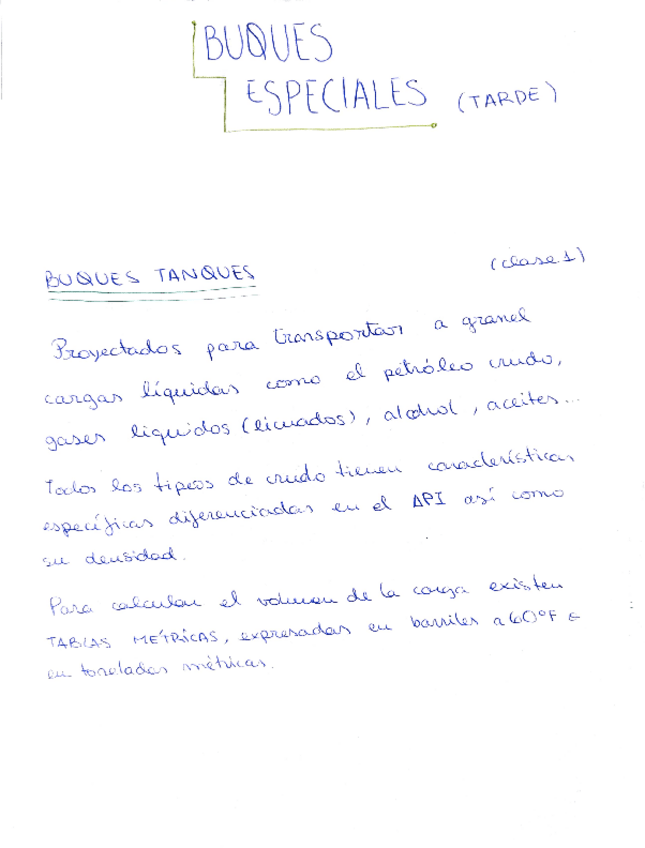 BUQUES
ESPECIALES (TARDE)
BUQUES TANQUES (clase 1)
Proyectados para transportar a granel
cargas líquidas como el petróleo crudo,
gases líquidos (licuados), alcohol, aceites...
Todos los tipos de crudo tienen características
específicas diferenciadas en el API así como
su densidad.
Para calcular el volumen de la carga existen
TABLAS MÉTRICAS, expresadas en barriles a 60°F
en toneladas métricas.